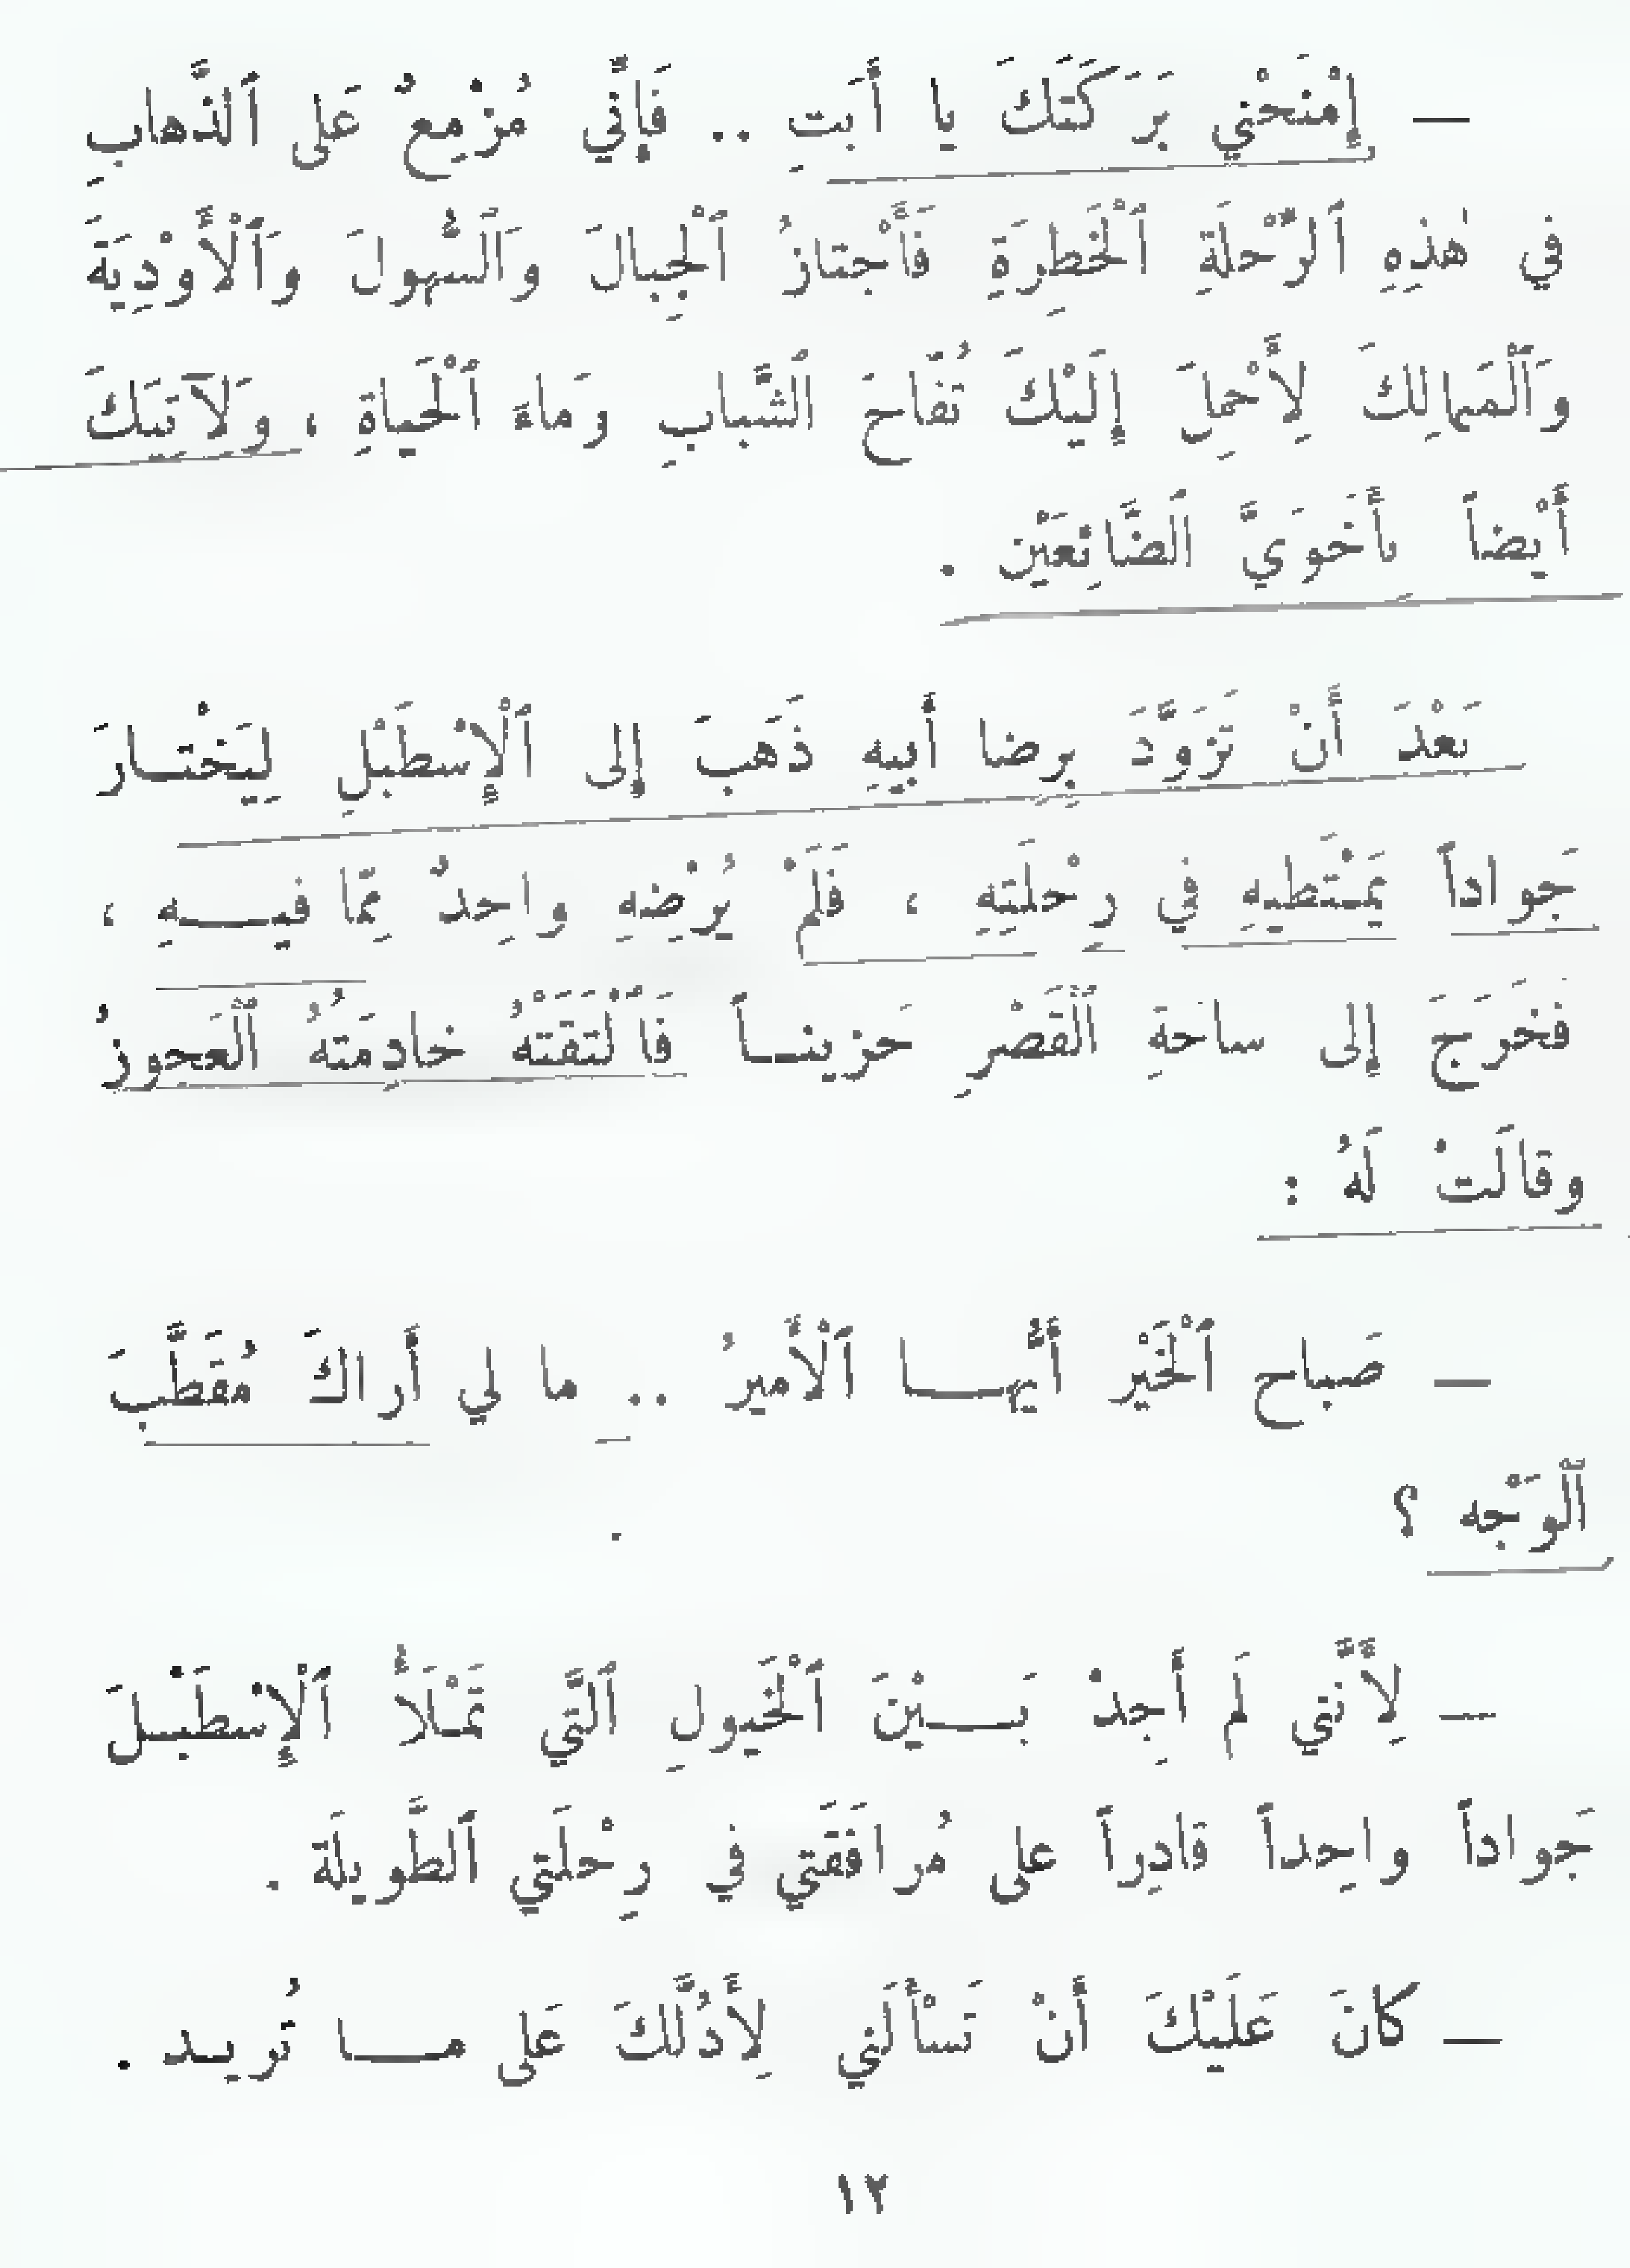 — إِمْنَحْني بَرَكَتَكَ يا أَبَتِ .. فَإِنّي مُزْمِعٌ عَلى ٱلذَّهابِ
في هٰذِهِ ٱلرِّحْلَةِ ٱلْخَطِرَةِ فَأَجْتازُ ٱلْجِبالَ وَٱلسُّهولَ وَٱلْأَوْدِيَةَ
وَٱلْمَمالِكَ لِأَحْمِلَ إِلَيْكَ تُفّاحَ ٱلشَّبابِ وَماءَ ٱلْحَياةِ ، وَلآتِيَكَ
أَيْضاً بِأَخَوَيَّ ٱلضَّائِعَيْنِ .
بَعْدَ أَنْ تَزَوَّدَ بِرِضا أَبيهِ ذَهَبَ إِلى ٱلْإِسْطَبْلِ لِيَخْتـارَ
جَواداً يَمْتَطيهِ في رِحْلَتِهِ ، فَلَمْ يُرْضِهِ واحِدٌ مِمّا فيـــهِ ،
فَخَرَجَ إِلى ساحَةِ ٱلْقَصْرِ حَزينـاً فَٱلْتَقَتْهُ خادِمَتُهُ ٱلْعَجوزُ
وقالَتْ لَهُ :
— صَباح ٱلْخَيْر أَيُّهـــا ٱلْأَميرُ .. ما لي أَراكَ مُقَطَّبَ
ٱلْوَجْه ؟
— لِأَنَّني لَم أَجِدْ بَـــيْنَ ٱلْخَيولِ ٱلَّتي تَمْلَأُ ٱلْإِسْطَبْـلَ
جَواداً واحِداً قادِراً على مُرافَقَتي في رِحْلَتي ٱلطَّويلَة .
— كانَ عَلَيْكَ أَنْ تَسْأَلَني لِأَدُلَّكَ عَلى مـــا تُريـد .
١٢